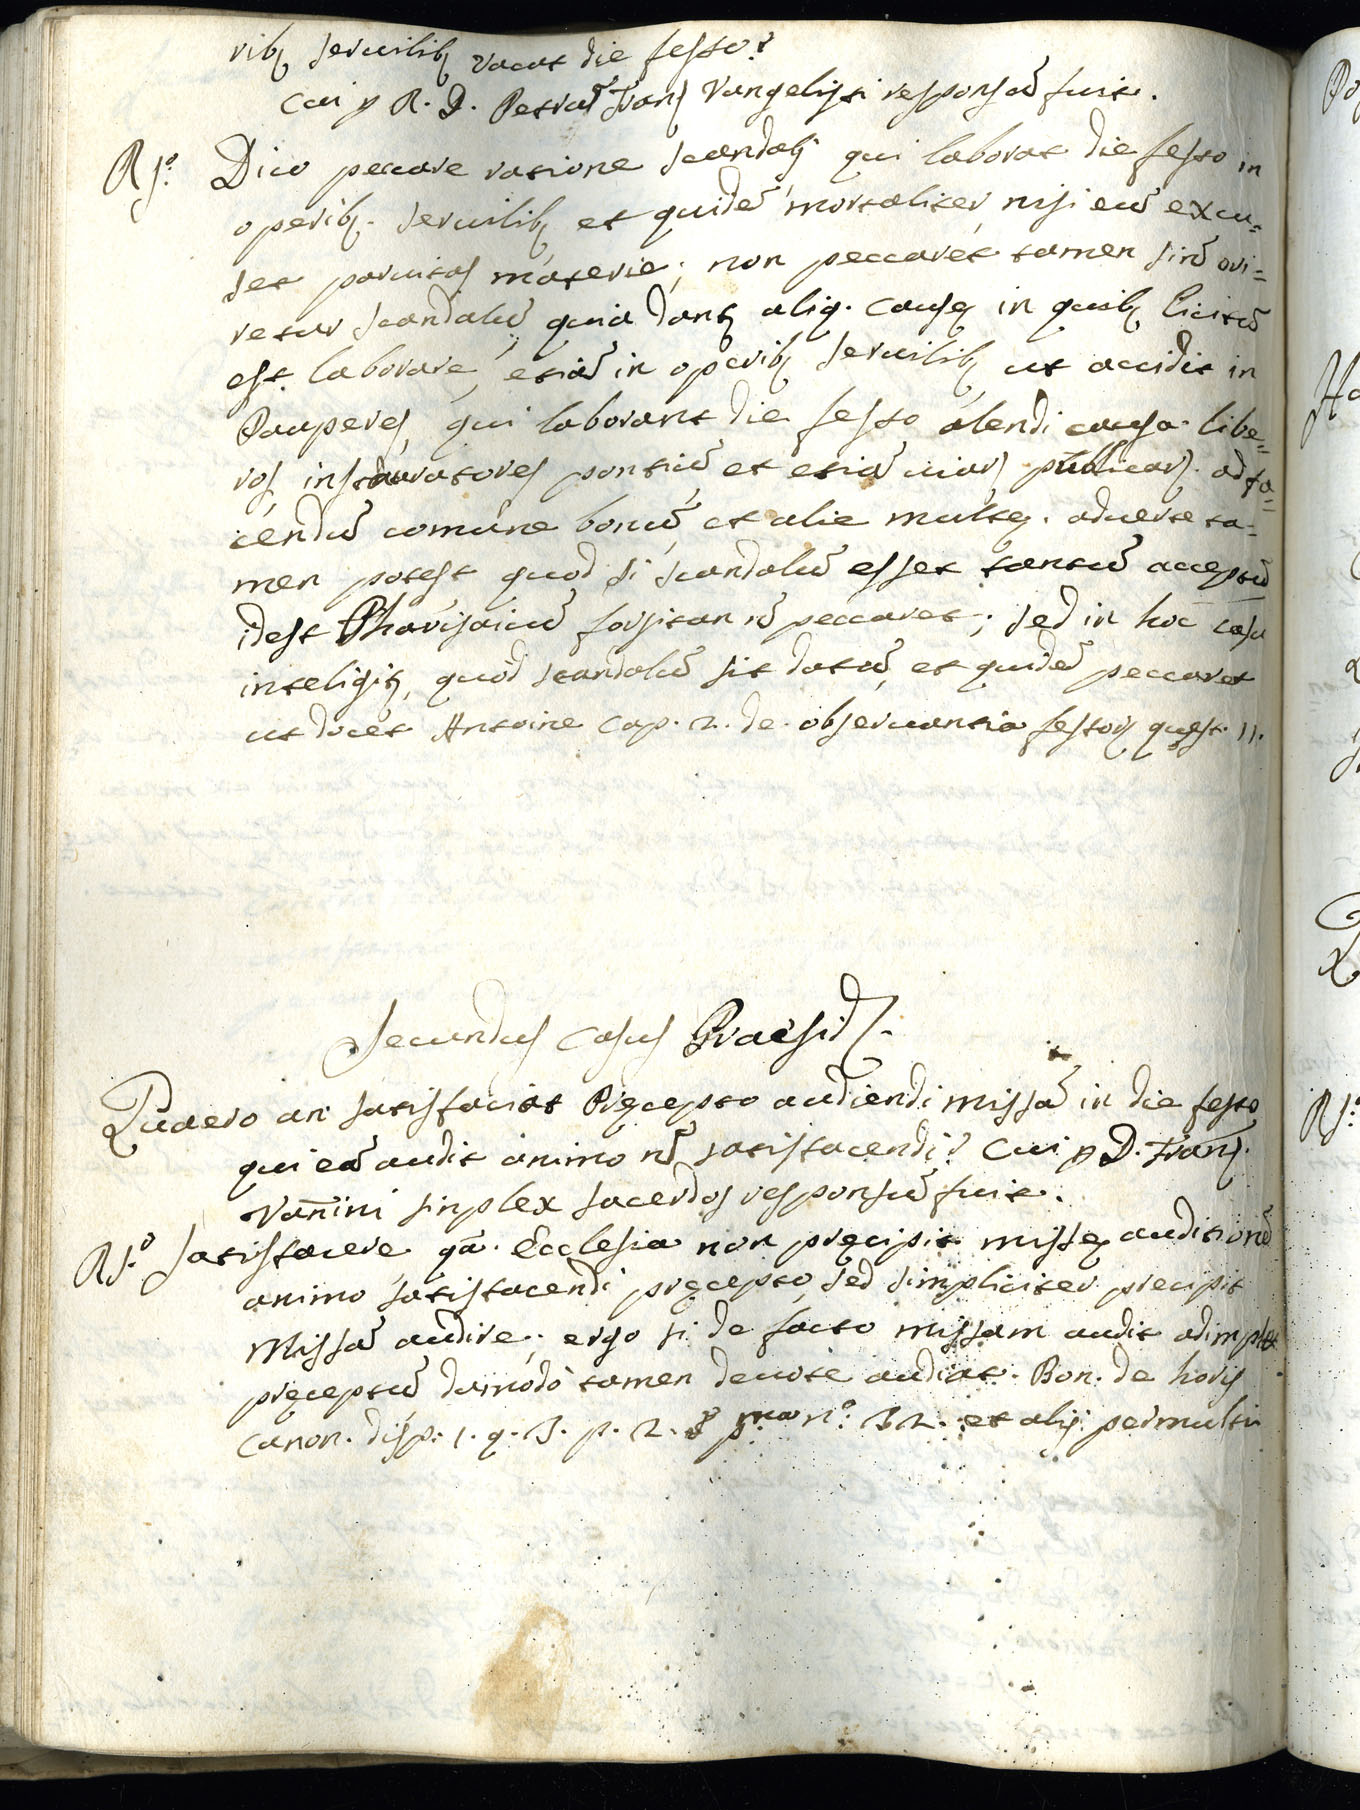 ribꝫ servilibꝫ vacat die festo?
Cui p R. D. Petrũ Franꝫ Vangelisti responsũ fuit.
Rs.º Dico peccare ratione scandalj qui laborat die festo in
operibꝫ. servilibꝫ et quidẽ mortaliter, nisi eũ excu=
set parvitas materie; non peccaret tamen sinõ ori=
retur scandalũ, quia dantꝫ aliq. causę in quibꝫ licitũ
est laborare, etiã in operibꝫ servilibꝫ ut accidit in
Pauperes, qui laborant die festo alendi causa libe=
ros instauratores pontiũ et etiã viarꝫ publicarꝫ. ad fa=
ciendũ comune bonũ, et alie multę. adverte ta-
men potest quod si scandalũ esset tantũ acceptũ
idest Pharisaicũ forsitan nõ peccaret; sed in hoc casu
inteligitꝫ, quod scandalũ sit datũ, et quidẽ peccaret
ut docet Antoine Cap. 2. de observantia festorꝫ quęst. 11.
Secundus Casus Praesid.
Quaero an satisfaciat Pręcepto audiendi missã in die festo
qui eã audit animo nõ satisfacendi? Cui p D. Franꝫ.
Vannini sinplex sacerdos responsũ fuit.
Rs.º satisfacere qã. Ecclesia non pręcipit missę auditionẽ
animo satisfacendi pręcepto, sed simpliciter precipit
Missã audire; ergo si de facto missam audit adimplet
pręceptũ dumodò tamen devotè audiat. Bon. de horis
Canon. disp. 1. q. 3. p. 2. nº: 32. et alij permulti